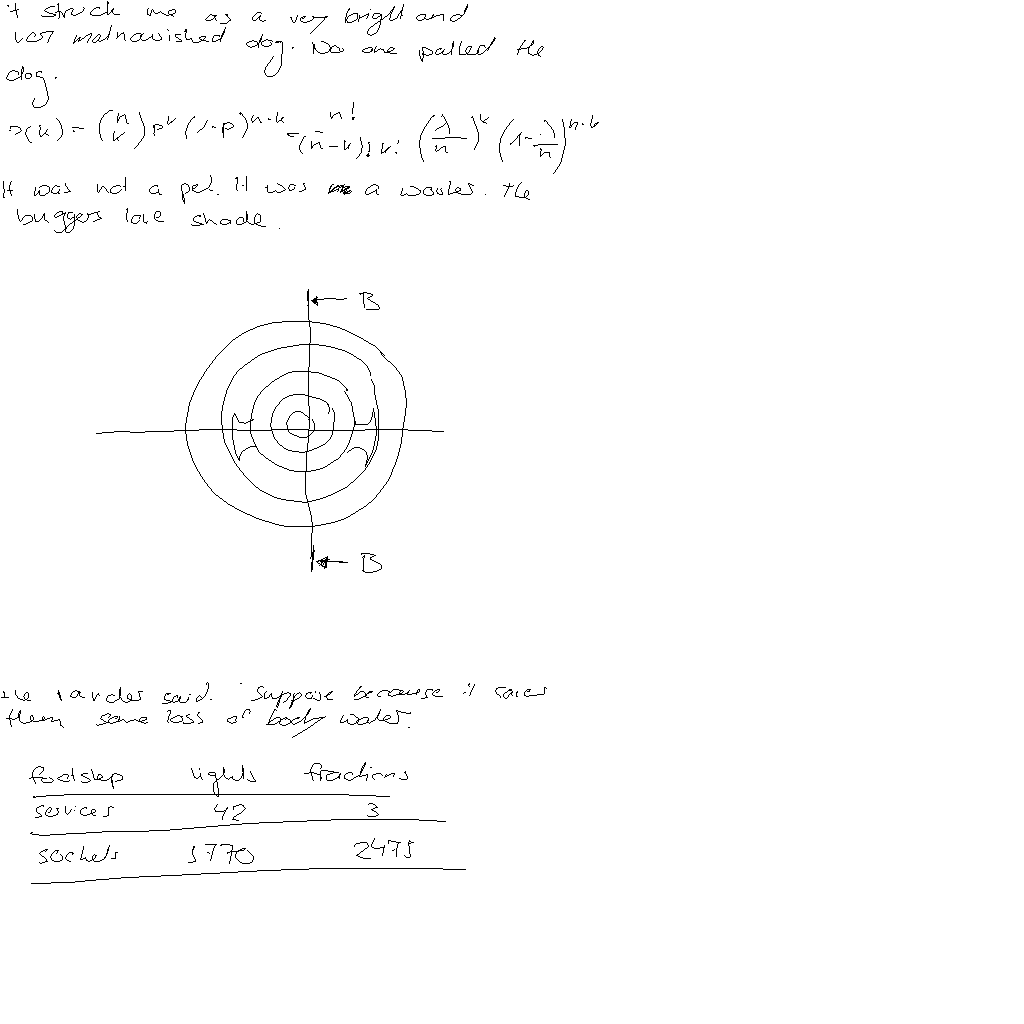 it struck me as a very bright and
very malnourished dog. No one patted the
dog.
P(k) = (n k) p^k (1-p)^(n-k) = n! / (n-k)! k! (λ/n)^k (1-λ/n)^(n-k)
It was not a pet. It was a worker. The
buggers love shade.
B
B
the said. Suppose because it saves
them some loss of body water.
footstep lights fractions
services 42 3
sockets 5770 2475